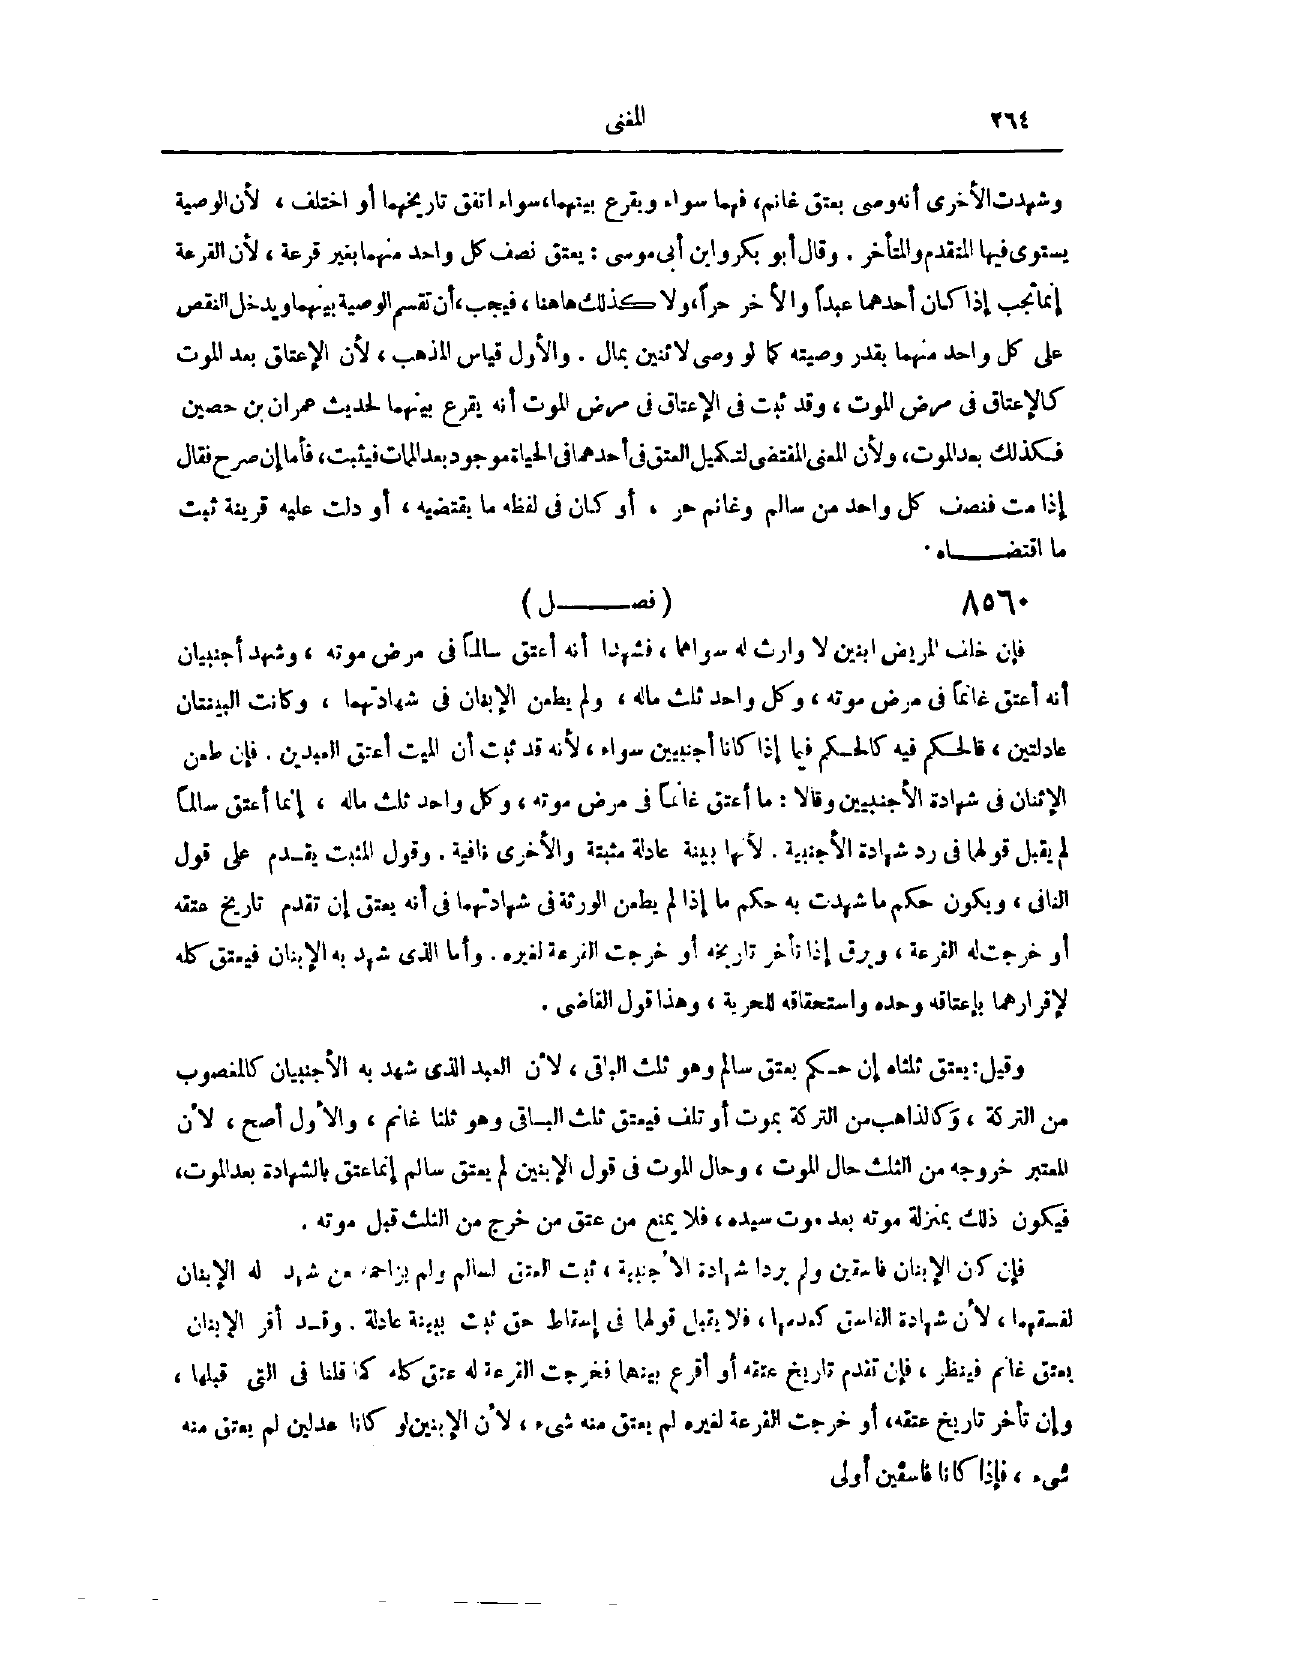 ٢٦٤
المغنى
وشهدت الأخرى أنه وصى بعتق غانم، فهما سواء ويقرع بينهما، سواء اتفق تاريخهما أو اختلف ، لأن الوصية
يستوى فيها المتقدم والمتأخر . وقال أبو بكر وابن أبى موسى : يعتق نصف كل واحد منهما بغير قرعة ، لأن القرعة
إنما تجب إذا كان أحدهما عبداً والآخر حراً، ولا كذلك هاهنا ، فيجب، أن تقسم الوصية بينهما ويدخل النقص
على كل واحد منهما بقدر وصيته كما لو وصى لاثنين بمال . والأول قياس المذهب ، لأن الإعتاق بعد الموت
كالإعتاق فى مرض الموت ، وقد ثبت فى الإعتاق فى مرض الموت أنه يقرع بينهما لحديث عمران بن حصين
فكذلك بعد الموت، ولأن المعنى المقتضى لتكميل العتق فى أحدهما فى الحياة موجود بعد الممات فيثبت، فأما إن صرح فقال
إذا مت فنصف كل واحد من سالم وغانم حر ، أو كان فى لفظه ما يقتضيه ، أو دلت عليه قرينة ثبت
ما اقتضاه .
٨٥٦٠ ( فصل )
فإن خلف المريض ابنين لا وارث له سواهما ، فشهدا أنه أعتق سالماً فى مرض موته ، وشهد أجنبيان
أنه أعتق غانماً فى مرض موته ، وكل واحد ثلث ماله ، ولم يطعن الإبنان فى شهادتهما ، وكانت البينتان
عادلتين ، فالحكم فيه كالحكم فيما إذا كانا أجنبيين سواء ، لأنه قد ثبت أن الميت أعتق العبدين . فإن طعن
الإثنان فى شهادة الأجنبيين وقالا : ما أعتق غانماً فى مرض موته ، وكل واحد ثلث ماله ، إنما أعتق سالماً
لم يقبل قولهما فى رد شهادة الأجنبية . لأنها بينة عادلة مثبتة والأخرى نافية . وقول المثبت يقدم على قول
النافى ، ويكون حكم ما شهدت به حكم ما إذا لم يطعن الورثة فى شهادتهما فى أنه يعتق إن تقدم تاريخ عتقه
أو خرجت له القرعة ، ويرق إذا تأخر تاريخه أو خرجت القرعة لغيره . وأما الذى شهد به الإبنان فيعتق كله
لإقرارهما بإعتاقه وحده واستحقاقه للحرية ، وهذا قول القاضى .
وقيل: يعتق ثلثاه إن حكم بعتق سالم وهو ثلث الباقى ، لأن العبد الذى شهد به الأجنبيان كالمغصوب
من التركة ، وكالذاهب من التركة بموت أو تلف فيعتق ثلث الباقى وهو ثلثا غانم ، والأول أصح ، لأن
المعتبر خروجه من الثلث حال الموت ، وحال الموت فى قول الإبنين لم يعتق سالم إنما عتق بالشهادة بعد الموت،
فيكون ذلك بمنزلة موته بعد موت سيده، فلا يمنع من عتق من خرج من الثلث قبل موته .
فإن كان الإبنان فاسقين ولم يردا شهادة الأجنبية ، ثبت العتق لسالم ولم يزاحمه من شهد له الإبنان
لفسقهما ، لأن شهادة الفاسق كعدمها ، فلا يقبل قولهما فى إسقاط حق ثبت ببينة عادلة . وقد أقر الإبنان
بعتق غانم فينظر ، فإن تقدم تاريخ عتقه أو أقرع بينهما فخرجت القرعة له عتق كله كما قلنا فى التى قبلها ،
وإن تأخر تاريخ عتقه، أو خرجت القرعة لغيره لم يعتق منه شىء ، لأن الإبنين لو كانا عدلين لم يعتق منه
شىء ، فإذا كانا فاسقين أولى